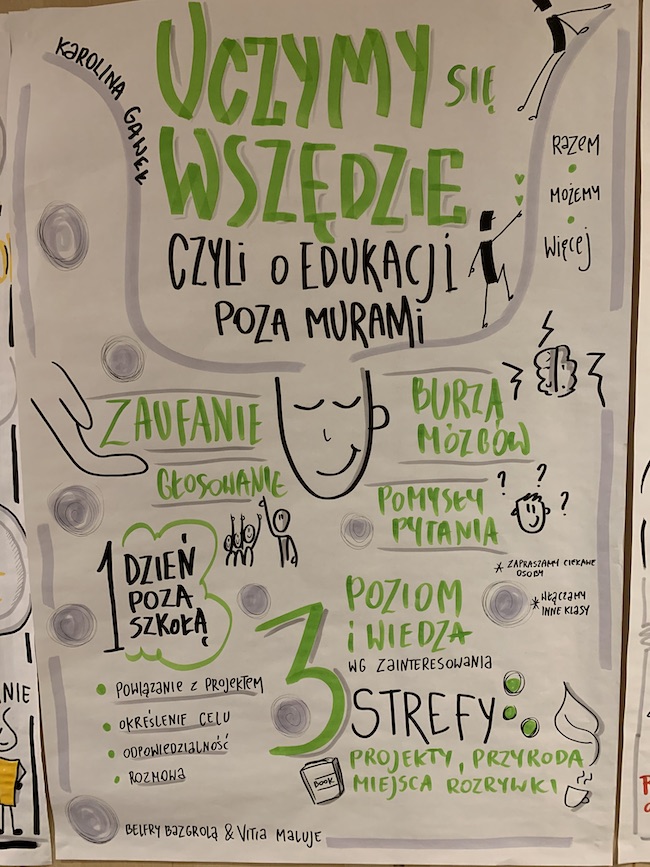 KAROLINA GAWEŁ
UCZYMY SIĘ
WSZĘDZIE
CZYLI O EDUKACJI
POZA MURAMI
RAZEM
MOŻEMY
WIĘCEJ
ZAUFANIE
GŁOSOWANIE
BURZA
MÓZGÓW
POMYSŁY
PYTANIA
? ? ?
* ZAPRASZAMY CIEKAWE
OSOBY
* WŁĄCZAMY
INNE KLASY
1 DZIEŃ
POZA
SZKOŁĄ
• POWIĄZANIE Z PROJEKTEM
• OKREŚLENIE CELU
• ODPOWIEDZIALNOŚĆ
• ROZMOWA
POZIOM
i WIEDZA
WG ZAINTERESOWANIA
3 STREFY
PROJEKTY, PRZYRODA
MIEJSCA ROZRYWKI
BOOK
BELFRY BAZGROLĄ & VITIA MALUJE
NIE